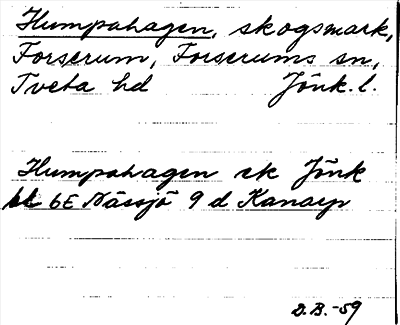 Humpahagen, skogsmark,
Forserum, Forserums sn,
Tveta hd Jönk. l.
Humpahagen ek Jönk
bl 6E Nässjö 9 d Kanarp
D.B.-59